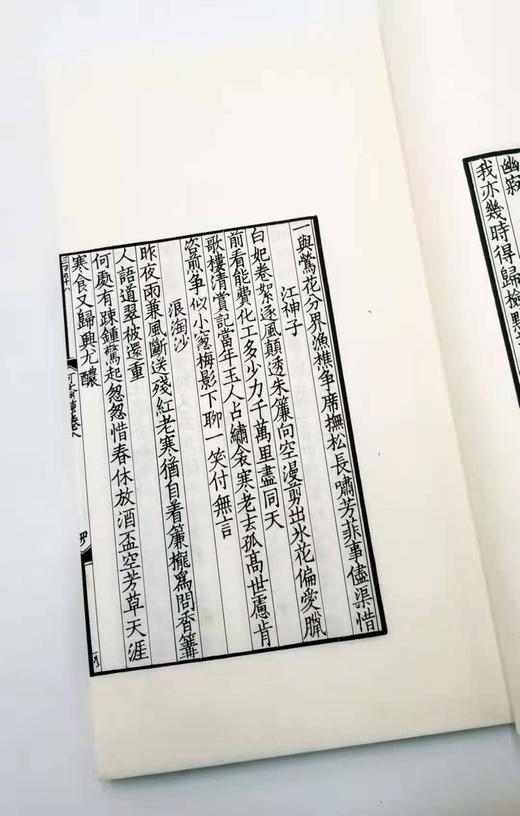 幽寂
我亦幾時得歸檢點
一與鶯花分界漁樵争席撫松長嘯芳菲事儘渠惜
江神子
白妃卷絮逐風顛透朱簾向空漫剪出氷花偏愛臘
前看能費化工多少力千萬里盡同天
歌樓清賞記當年玉人占繡衾寒老去孤高世慮肯
容煎争似小窓梅影下聊一笑付無言
浪淘沙
昨夜雨兼風斷送殘紅老寒猶自着簾櫳為問香篝
人語道翠被還重
何處有疎鍾驚起怱怱惜春休放酒盃空芳草天涯
寒食又歸興尤醲